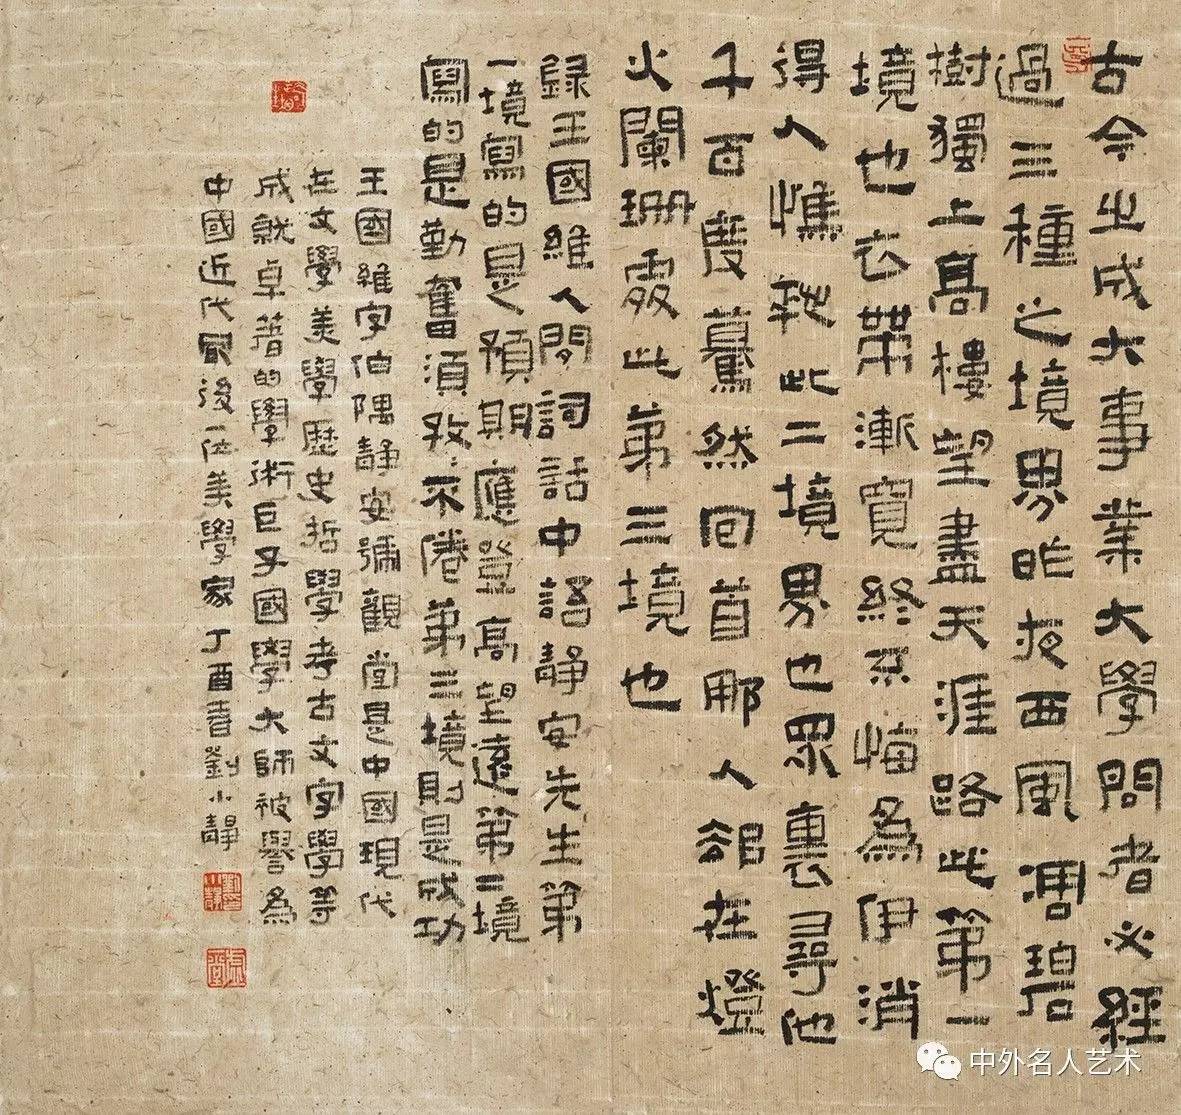 古今之成大事業大學問者必經
過三種之境界昨夜西風凋碧
樹獨上高樓望盡天涯路此第一
境也衣帶漸寬終不悔為伊消
得人憔悴此二境界也眾裏尋他
千百度驀然回首那人卻在燈
火闌珊處此第三境也
錄王國維人間詞話中語靜安先生第
一境寫的是預期應登高望遠第二境
寫的是勤奮須孜〻不倦第三境則是成功
王國維字伯隅靜安號觀堂是中國現代
在文學美學歷史哲學考古文字學等
成就卓著的學術巨子國學大師被譽為
中國近代最後一位美學家丁酉春劉小靜
中外名人艺术